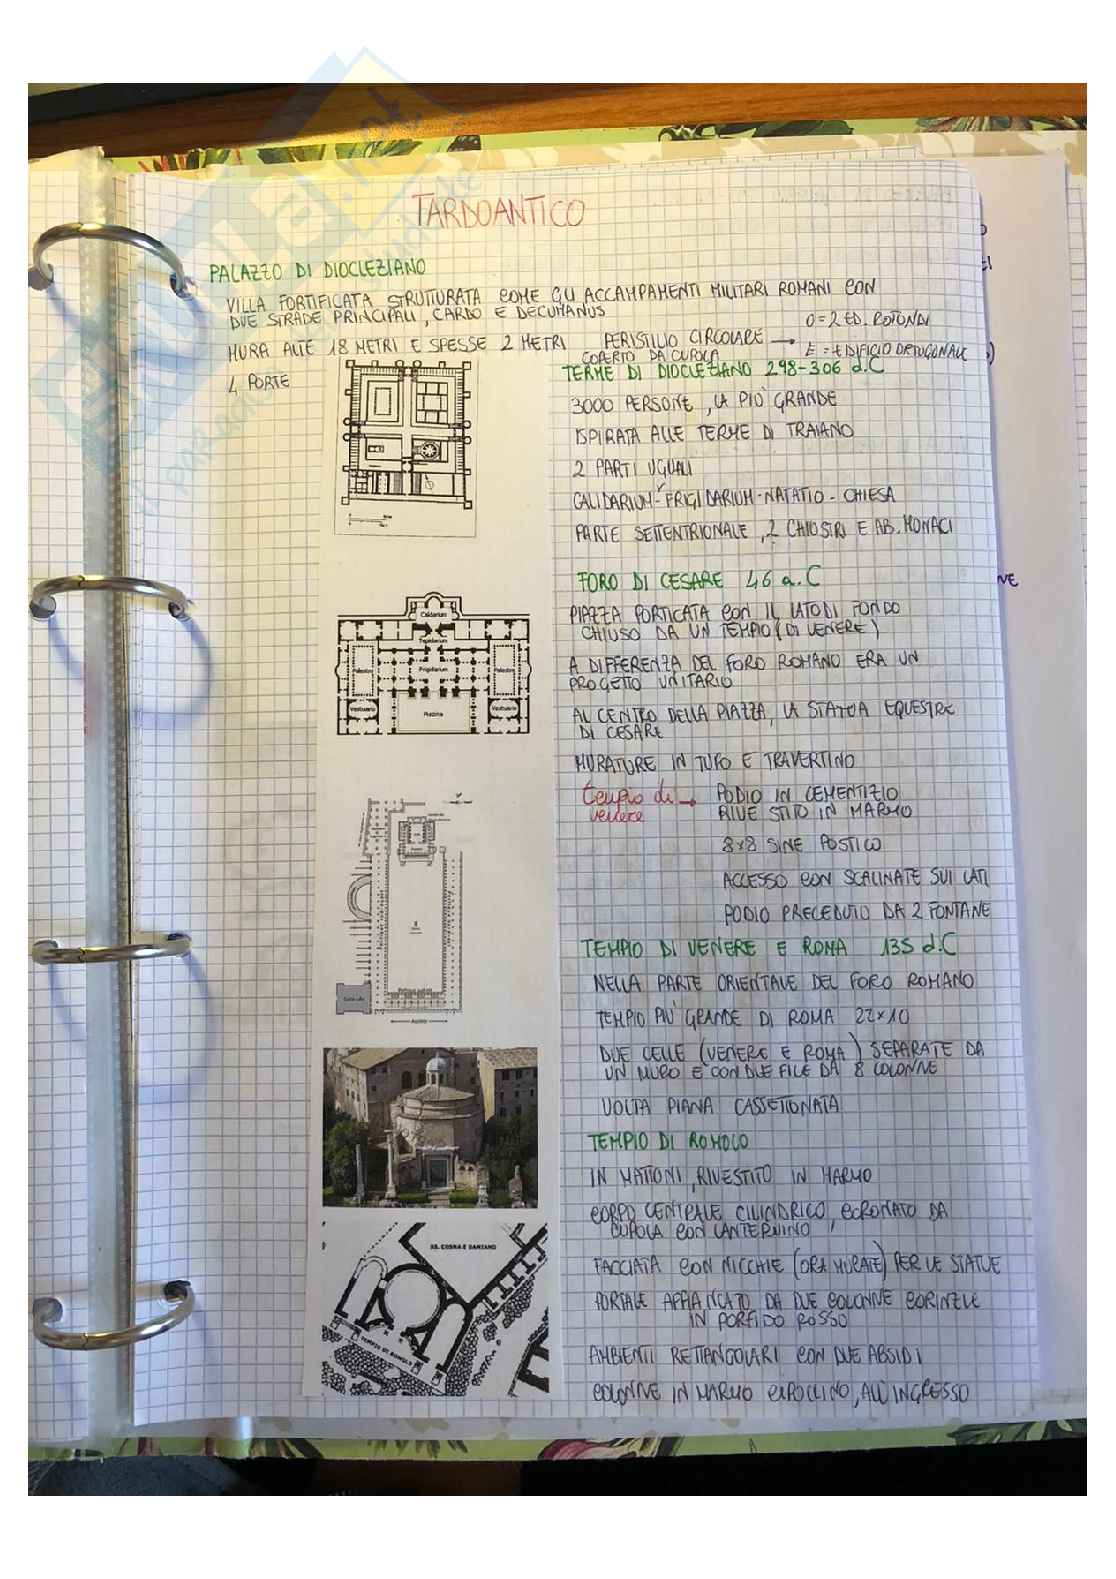 TARDOANTICO
PALAZZO DI DIOCLEZIANO
VILLA FORTIFICATA STRUTTURATA COME GLI ACCAMPAMENTI MILITARI ROMANI CON
DUE STRADE PRINCIPALI, CARDO E DECUMANUS
MURA ALTE 18 METRI E SPESSE 2 METRI
PERISTILIO CIRCOLARE →
COPERTO DA CUPOLA
O = 2 ED. ROTONDI
E = EDIFICIO ORTOGONALE
4 PORTE
TERME DI DIOCLEZIANO 298-306 d.C
3000 PERSONE, LA PIÙ GRANDE
ISPIRATA ALLE TERME DI TRAIANO
2 PARTI UGUALI
CALIDARIUM-FRIGIDARIUM-NATATIO-CHIESA
PARTE SETTENTRIONALE, 2 CHIOSTRI E AB. MONACI
Calidarium
Tepidarium
Palestra
Frigidarium
Palestra
Vestuario
Piscina
Vestuario
FORO DI CESARE 46 a.C
PIAZZA PORTICATA CON IL LATO DI FONDO
CHIUSO DA UN TEMPIO (DI VENERE)
A DIFFERENZA DEL FORO ROMANO ERA UN
PROGETTO UNITARIO
AL CENTRO DELLA PIAZZA, LA STATUA EQUESTRE
DI CESARE
MURATURE IN TUFO E TRAVERTINO
tempio di →
venere
PODIO IN CEMENTIZIO
RIVESTITO IN MARMO
8x8 SINE POSTICO
ACCESSO CON SCALINATE SUI LATI
PODIO PRECEDUTO DA 2 FONTANE
TEMPIO DI VENERE E ROMA 135 d.C
NELLA PARTE ORIENTALE DEL FORO ROMANO
TEMPIO PIÙ GRANDE DI ROMA 22x10
DUE CELLE (VENERE E ROMA) SEPARATE DA
UN MURO E CON DUE FILE DA 8 COLONNE
VOLTA PIANA CASSETTONATA
TEMPIO DI ROMOLO
IN MATTONI, RIVESTITO IN MARMO
CORPO CENTRALE CILINDRICO, CORONATO DA
CUPOLA CON LANTERNINO
FACCIATA CON NICCHIE (ORA MURATE) PER LE STATUE
PORTALE AFFIANCATO DA DUE COLONNE CORINZIE
IN PORFIDO ROSSO
AMBIENTI RETTANGOLARI CON DUE ABSIDI
COLONNE IN MARMO CIPOLLINO, ALL'INGRESSO
SS. COSMA E DAMIANO
TEMPIO DI ROMOLO